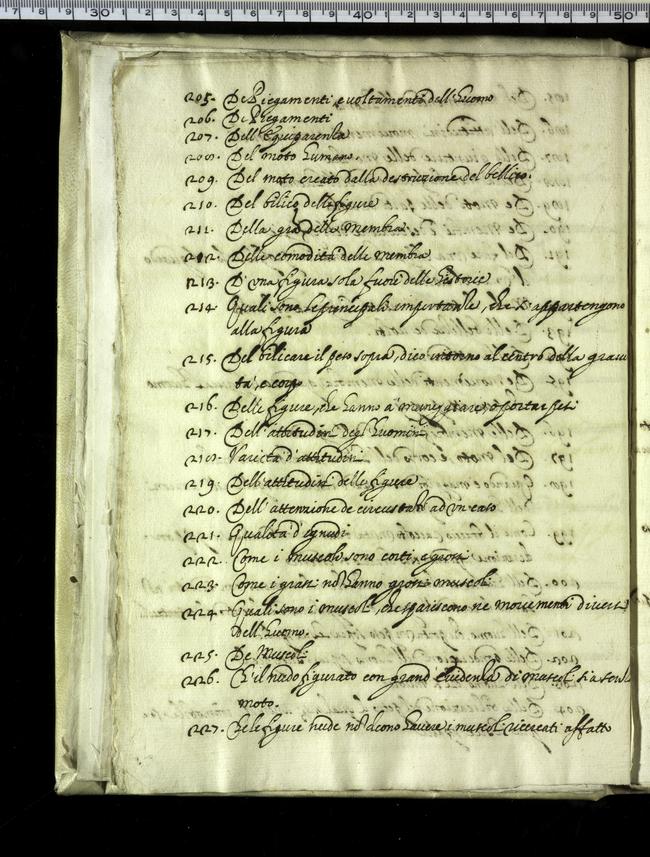 205. De Piegamenti, e voltamenti dell'huomo
206. De Piegamenti
207. Dell'Equiparenza
208. Del moto humano.
209. Del moto creato dalla destruzione del bellico.
210. Del bilico delle figure
211. Della gra delle membra.
212. Delle comodità delle membra
213. D'una figura sola fuori delle historie
214. Quali sono le principali importantie, che appartengono
alla figura
215. Del bilicare il peso sopra, dico intorno al centro della gravi
tà, e corpi
216. Delle figure, che hanno à maneggiare, ò portar pesi
217. Dell'attitudini degl'huomini
218. Varietà d'attitudini
219. Dell'attitudini delle figure
220. Dell'attenzione de circustanti ad un caso
221. Qualità d'ignudi
222. Come i muscoli sono corti, e grossi
223. Come i grassi no hanno grossi muscoli
224. Quali sono i muscoli, che spariscono ne movementi diversi
dell'huomo.
225. De Muscoli
226. Ch'il nudo figurato con grand'evidenza di muscoli sia senza
moto.
227. Che le figure nude no deono havere i muscoli ricercati affatto